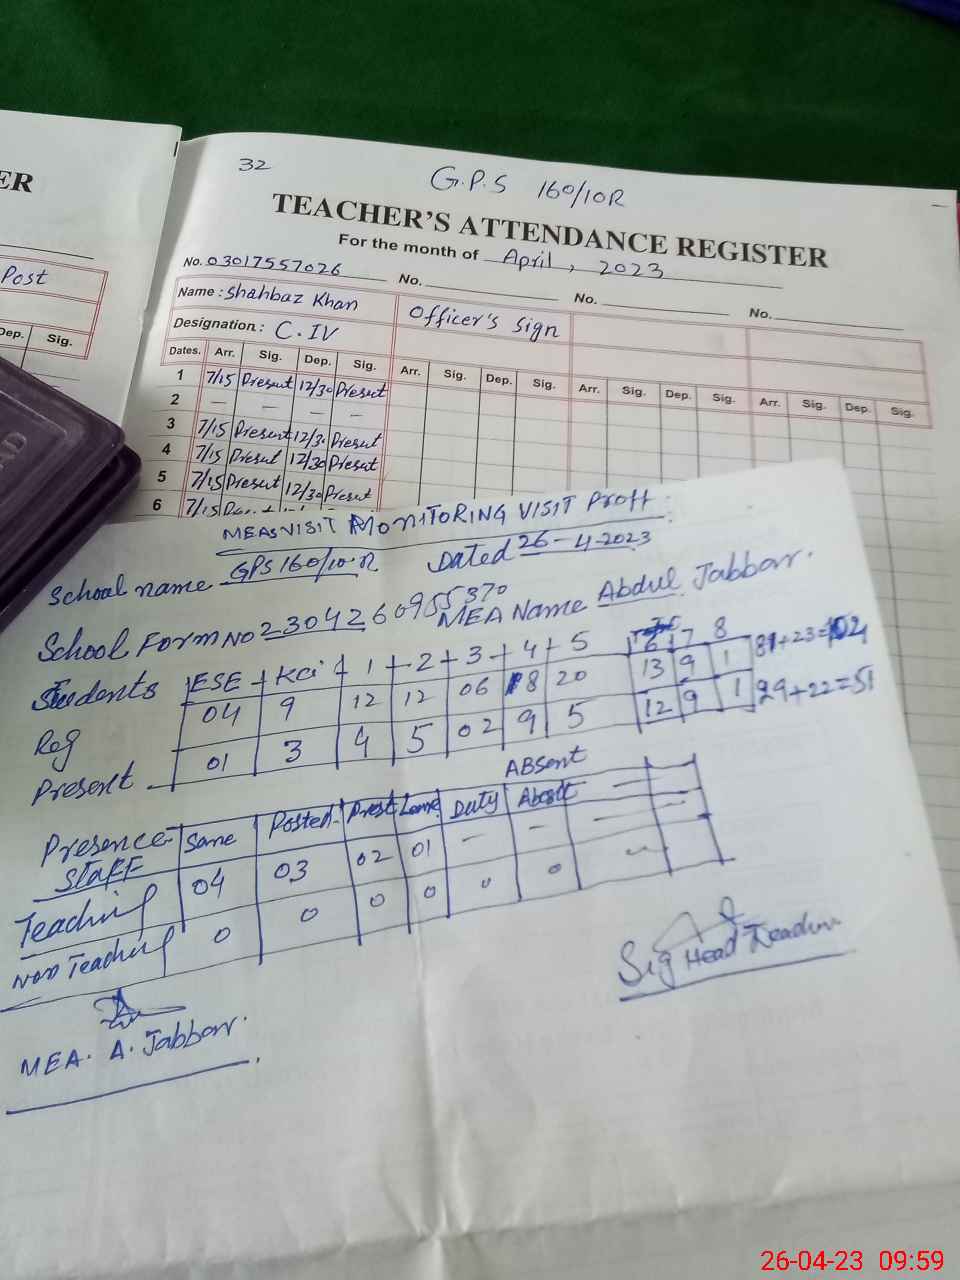 ER
Post
Dep. Sig.
32
G.P.S 160/10R
TEACHER'S ATTENDANCE REGISTER
For the month of April, 2023
No. 03017557026 No. No. No.
Name: Shahbaz Khan Officer's Sign
Designation: C.IV
Dates. Arr. Sig. Dep. Sig. Arr. Sig. Dep. Sig. Arr. Sig. Dep. Sig. Arr. Sig. Dep. Sig.
1 7/15 Present 12/30 Present
2 — — — —
3 7/15 Present 12/30 Present
4 7/15 Present 12/30 Present
5 7/15 Present 12/30 Present
6 7/15
MEAS VISIT MONITORING VISIT Proff
School name GPS 160/10-R Dated 26-4-2023
School Form No 2304260955370 MEA Name Abdul Jabbar.
Students ESE Kci 1 2 3 4 5 6 7 8
Reg 04 9 12 12 06 18 20 13 9 1 81+23=104
Present 01 3 4 5 02 9 5 12 9 1 29+22=51
ABSent
Presence STAFF Sane Posted Prest Leave Duty
Teaching 04 03 02 01 — — —
Non Teaching 0 0 0 0 0 0
Sig Head Teacher
MEA. A. Jabbar.
26-04-23 09:59